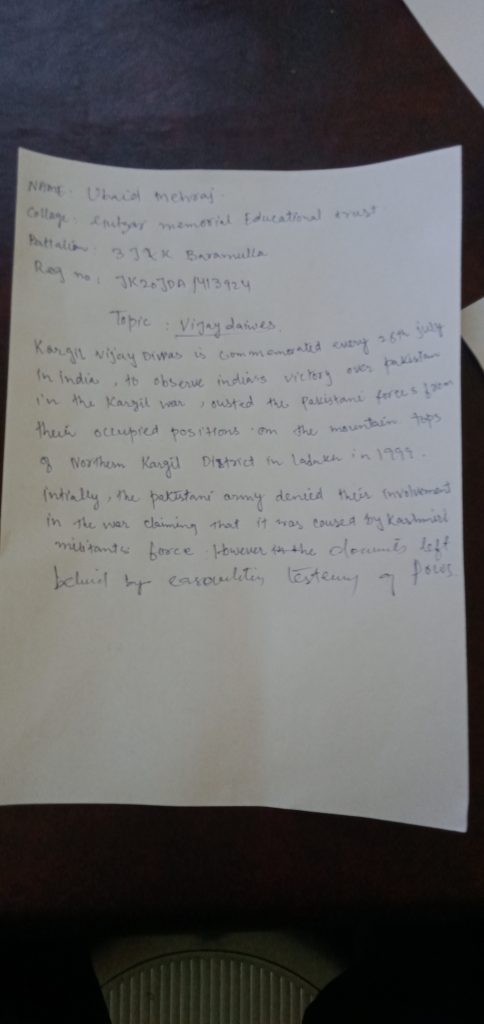 NAME: Ubaid Mehraj.
College: memorial Educational trust
Battalion: 3 J&K Baramulla
Reg no: JK20JDA/413924
Topic: Vijay daiwes.
Kargil vijay Diwas is commemorated every 26th july
in india, to observe indias victory over pakistan
in the Kargil war, ousted the pakistani forces from
their occupied positions on the mountain tops
of Northern Kargil District in ladakh in 1999.
intially, the pakistani army denied their involvement
in the war claiming that it was caused by Kashmiri
militants force. However the left
behind by of